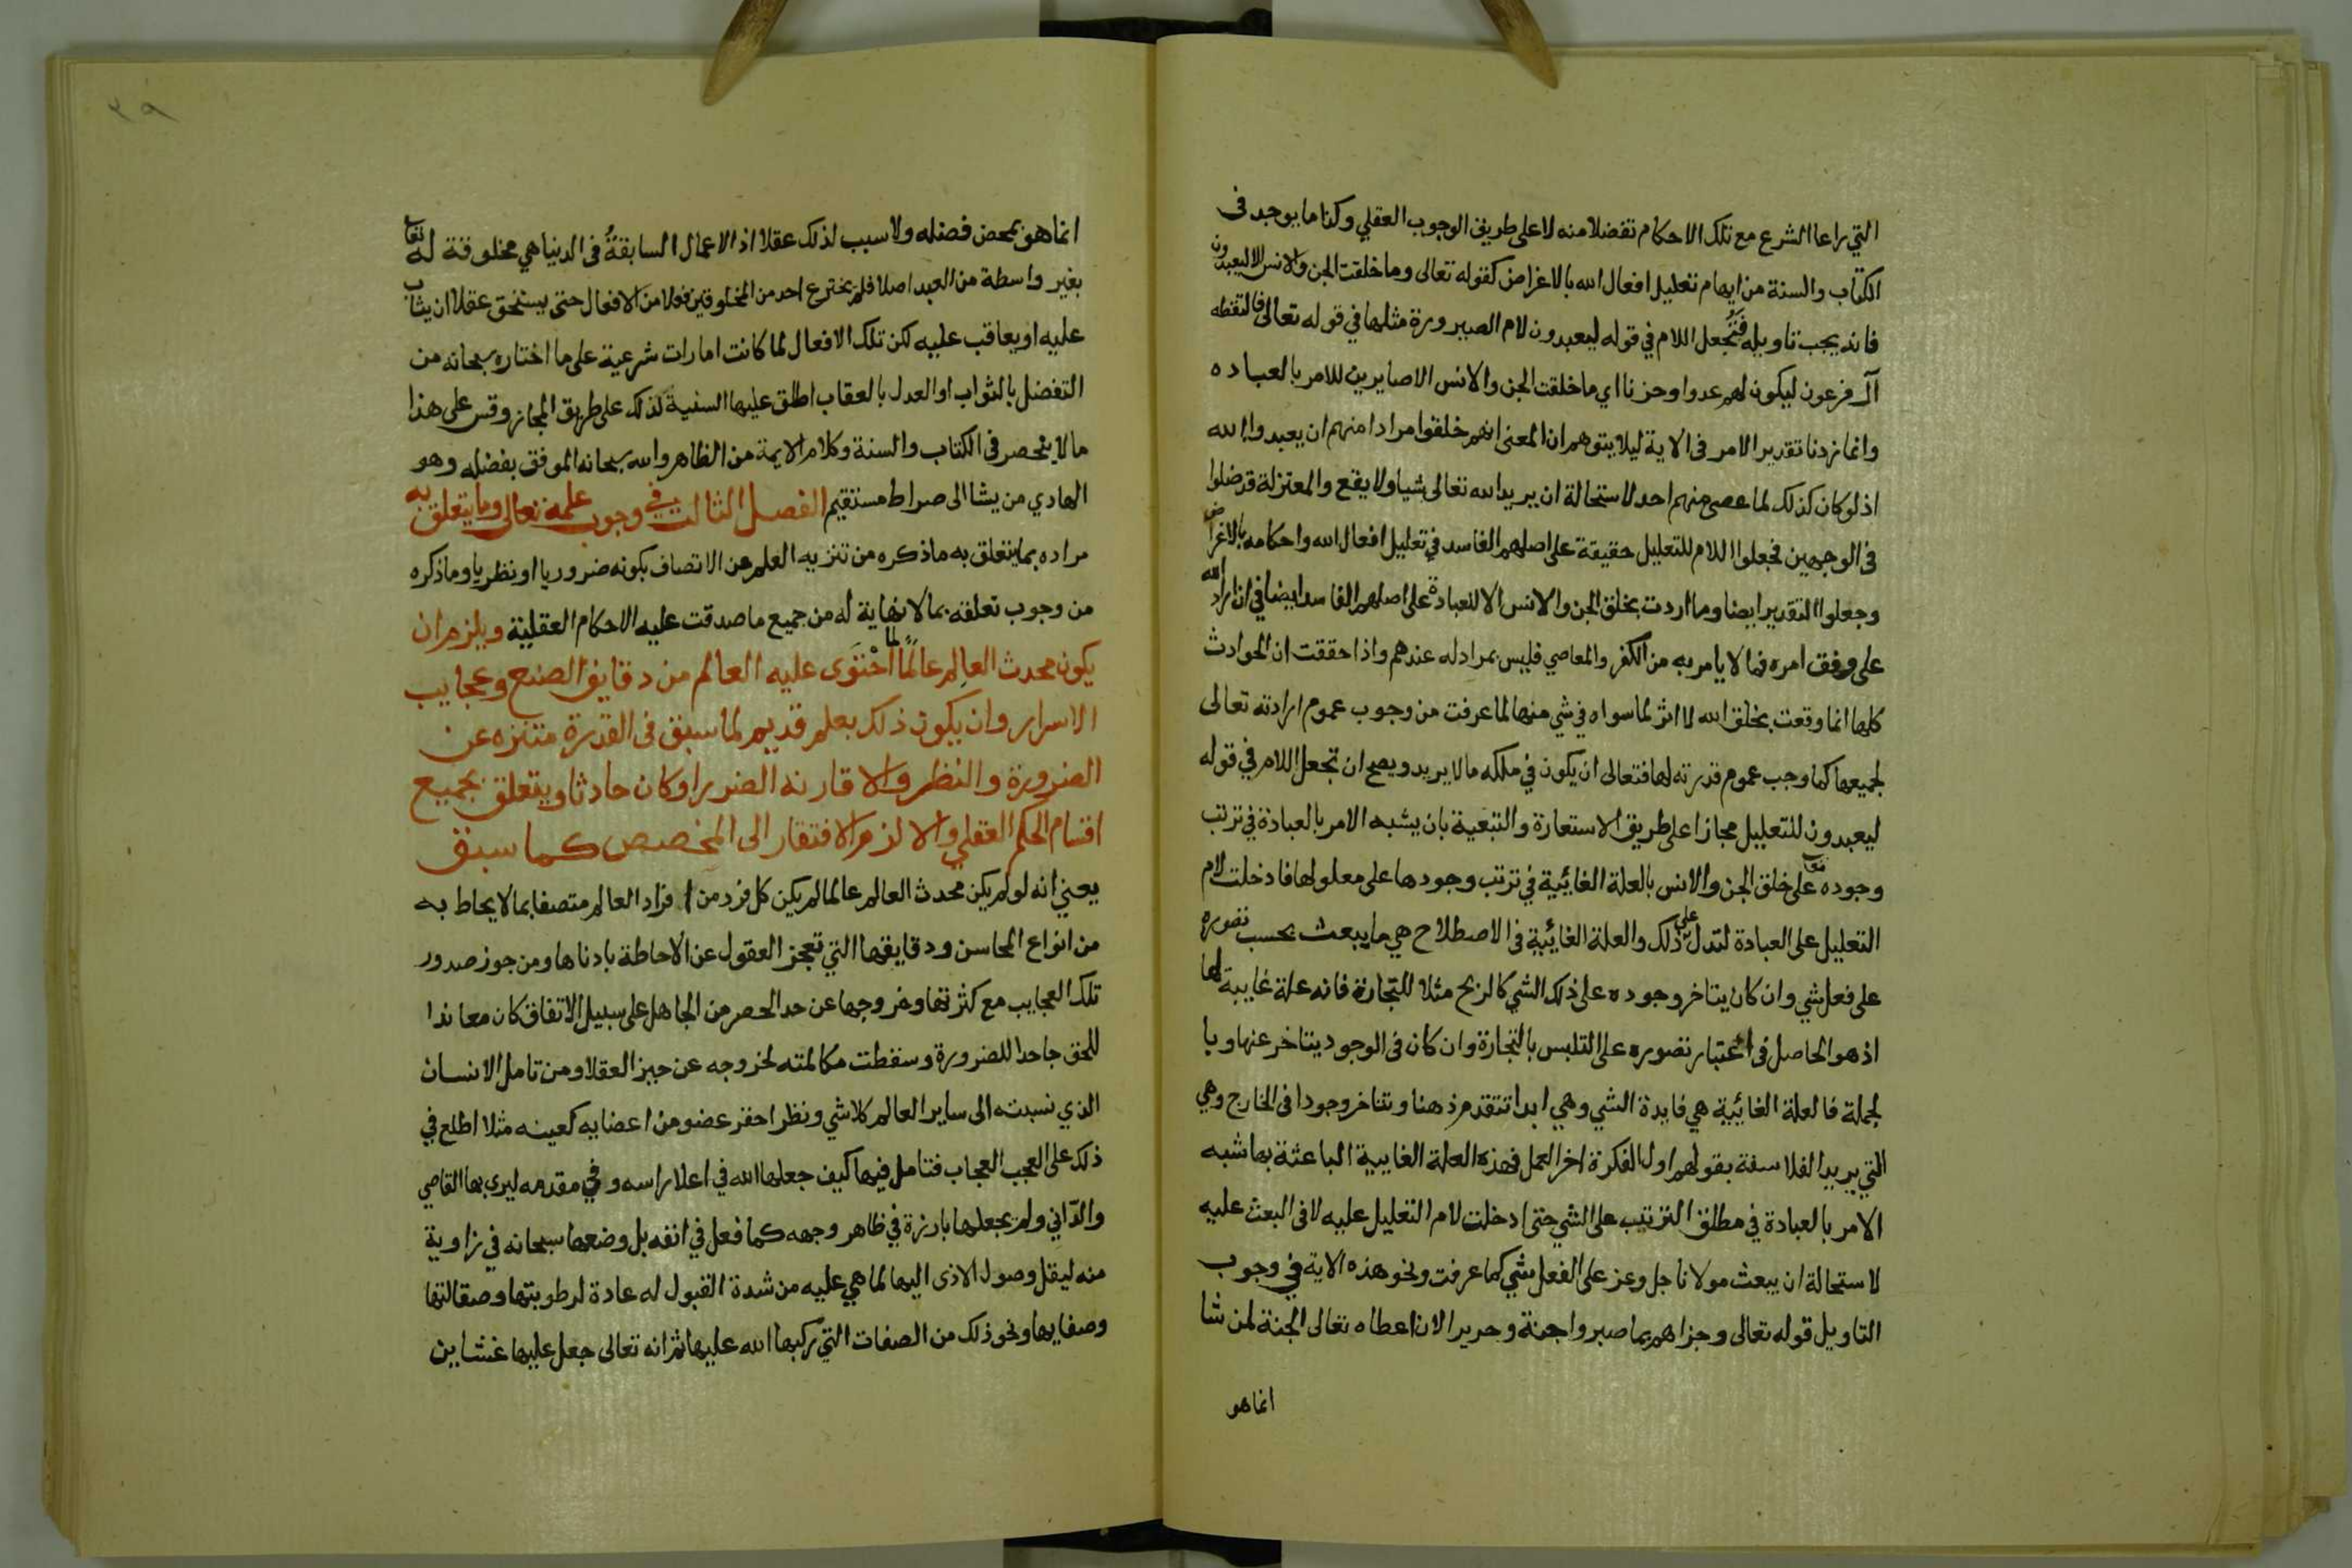 التي راعا الشرع مع تلك الاحكام تفضلا منه لا على طريق الوجوب العقلي وكذا ما يوجد في
الكتاب والسنة من ايهام تعليل افعال الله بالاغراض كقوله تعالى وما خلقت الجن والانس الا ليعبدون
فانه يجب تاويله فتجعل اللام في قوله ليعبدون لام الصيرورة مثلها في قوله تعالى فالتقطه
آل فرعون ليكون لهم عدوا وحزنا اي ما خلقت الجن والانس الا صايرين للامر بالعباده
وانما زدنا تقدير الامر في الاية ليلا يتوهم ان المعنى انهم خلقوا مرادا منهم ان يعبدوا الله
اذ لو كان كذلك لما عصى منهم احد لاستحالة ان يريد الله تعالى شيا ولا يقع والمعتزلة قد ضلوا
في الوجهين فجعلوا اللام للتعليل حقيقة على اصلهم الفاسد في تعليل افعال الله واحكامه بالاغراض
وجعلوا التقدير ايضا وما اردت بخلق الجن والانس الا للعبادة على اصلهم الفاسد ايضا في ان ارادة الله
على وفق امره فما لا يامر به من الكفر والمعاصي فليس بمراد له عندهم واذا حققت ان الحوادث
كلها انما وقعت بخلق الله لا اثر لما سواه في شي منها لما عرفت من وجوب عموم ارادته تعالى
لجميعها كما وجب عموم قدرته لها فتعالى ان يكون في ملكه ما لا يريد ويصح ان تجعل اللام في قوله
ليعبدون للتعليل مجازا على طريق الاستعارة والتبعية بان يشبه الامر بالعبادة في ترتب
وجوده على خلق الجن والانس بالعلة الغائية في ترتب وجودها على معلولها فادخلت لام
التعليل على العبادة لتدل على ذلك والعلة الغائية في الاصطلاح هي ما يبعث بحسب تصوره
على فعل شي وان كان يتاخر وجوده على ذلك الشي كالربح مثلا للتجارة فانه علة غايية لها
اذ هو الحاصل في اعتبار تصوره على التلبس بالتجارة وان كان في الوجود يتاخر عنها وبا
لجملة فالعلة الغائية هي فايدة الشي وهي ابدا تتقدم ذهنا وتتاخر وجودا في الخارج وهي
التي يريد الفلاسفة بقولهم اول الفكرة اخر العمل فهذه العلة الغايية الباعثة بها شبه
الامر بالعبادة في مطلق الترتيب على الشي حتى ادخلت لام التعليل عليه لا في البعث عليه
لاستحالة ان يبعث مولانا جل وعز على الفعل شي كما عرفت ونحو هذه الاية في وجوب
التاويل قوله تعالى وجزاهم بما صبروا جنة وحريرا لان اعطاه تعالى الجنة لمن شا
انما هو
٣٩
انما هو بمحض فضله ولا سبب لذلك عقلا اذ الاعمال السابقة في الدنيا هي مخلوقة له تعا
بغير واسطة من العبد اصلا فلم يخترع احد من المخلوقين فعلا من الافعال حتى يستحق عقلا ان يثاب
عليه او يعاقب عليه لكن تلك الافعال لما كانت امارات شرعية على ما اختاره سبحانه من
التفضل بالثواب او العدل بالعقاب اطلق عليها السببية لذلك على طريق المجاز وقس على هذا
ما لا ينحصر في الكتاب والسنة وكلام الايمة من الظاهر والله سبحانه الموفق بفضله وهو
الهادي من يشا الى صراط مستقيم الفصل الثالث في وجوب علمه تعالى وما يتعلق به
مراده بما يتعلق به ما ذكره من تنزيه العلم عن الاتصاف بكونه ضروريا او نظريا وما ذكره
من وجوب تعلقه بما لا نهاية له من جميع ما صدقت عليه الاحكام العقلية ويلزم ان
يكون محدث العالم عالما لما احتوى عليه العالم من دقايق الصنع وعجايب
الاسرار وان يكون ذلك بعلم قديم لما سبق في القدرة متنزه عن
الضرورة والنظر والا قارنه الضرر او كان حادثا ويتعلق بجميع
اقسام الحكم العقلي والا لزم الافتقار الى المخصص كما سبق
يعني انه لو لم يكن محدث العالم عالما لم يكن كل فرد من افراد العالم متصفا بما لا يحاط به
من انواع المحاسن ودقايقها التي تعجز العقول عن الاحاطة بادناها ومن جوز صدور
تلك العجايب مع كثرتها وخروجها عن حد الحصر من الجاهل على سبيل الاتفاق كان معاندا
للحق جاحدا للضرورة وسقطت مكالمته لخروجه عن حيز العقلا ومن تامل الانسان
الذي نسبته الى ساير العالم كلا شي ونظر احقر عضو من اعضايه كعينه مثلا اطلع في
ذلك على العجب العجاب فتامل فيها كيف جعلها الله في اعلا راسه وفي مقدمه ليرى بها القاصي
والداني ولم يجعلها بارزة في ظاهر وجهه كما فعل في انفه بل وضعها سبحانه في زاوية
منه ليقل وصول الاذى اليها لما هي عليه من شدة القبول له عادة لرطوبتها وصقالتها
وصفايها ونحو ذلك من الصفات التي ركبها الله عليها ثم انه تعالى جعل عليها غشاين